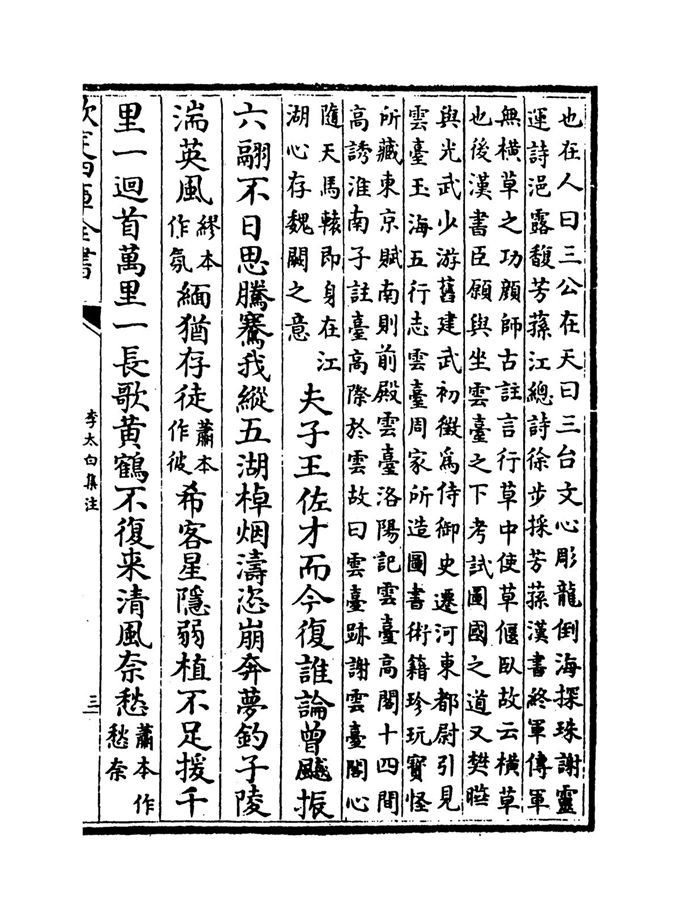 也在人曰三公在天曰三台文心彫龍倒海探珠謝靈
運詩浥露馥芳蓀江總詩徐步採芳蓀漢書終軍傳軍
無橫草之功顔師古註言行草中使草偃臥故云橫草
也後漢書臣願與坐雲臺之下考試圖國之道又樊曄
與光武少游舊建武初徵為侍御史遷河東都尉引見
雲臺玉海五行志雲臺周家所造圖書術籍珍玩寶怪
所藏東京賦南則前殿雲臺洛陽記雲臺高閣十四間
高誘淮南子註臺高際於雲故曰雲臺跡謝雲臺閣心
隨天馬轅即身在江
湖心存魏闕之意
夫子王佐才而今復誰論曾飈振
六翮不日思騰騫我縱五湖棹烟濤恣崩奔夢釣子陵
湍英風
繆本
作氛
緬猶存徒
蕭本
作彼
希客星隱弱植不足援千
里一迴首萬里一長歌黄鶴不復来清風奈愁
蕭本作
愁奈
欽定四庫全書
李太白集注
三